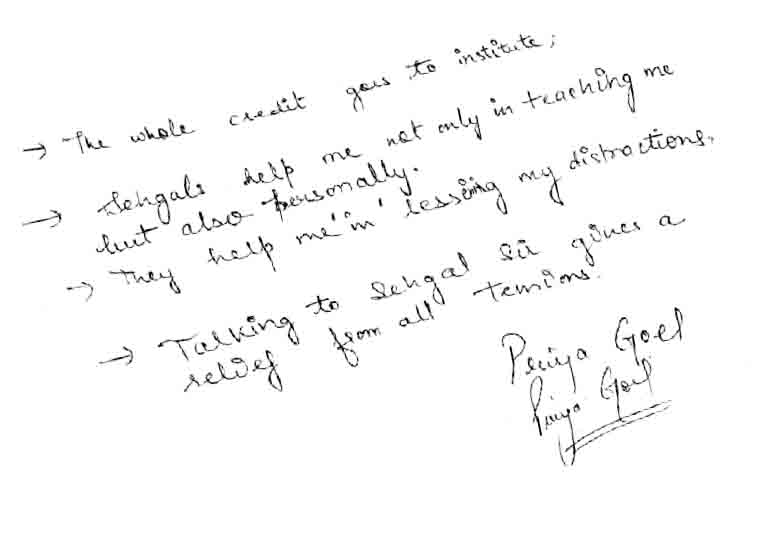 → The whole credit goes to institute;
→ Sehgals help me not only in teaching me
but also personally.
→ They help me 'in' lessening my distractions.
→ Talking to Sehgal sir gives a
relief from all tensions.
Priya Goel
Priya Goel